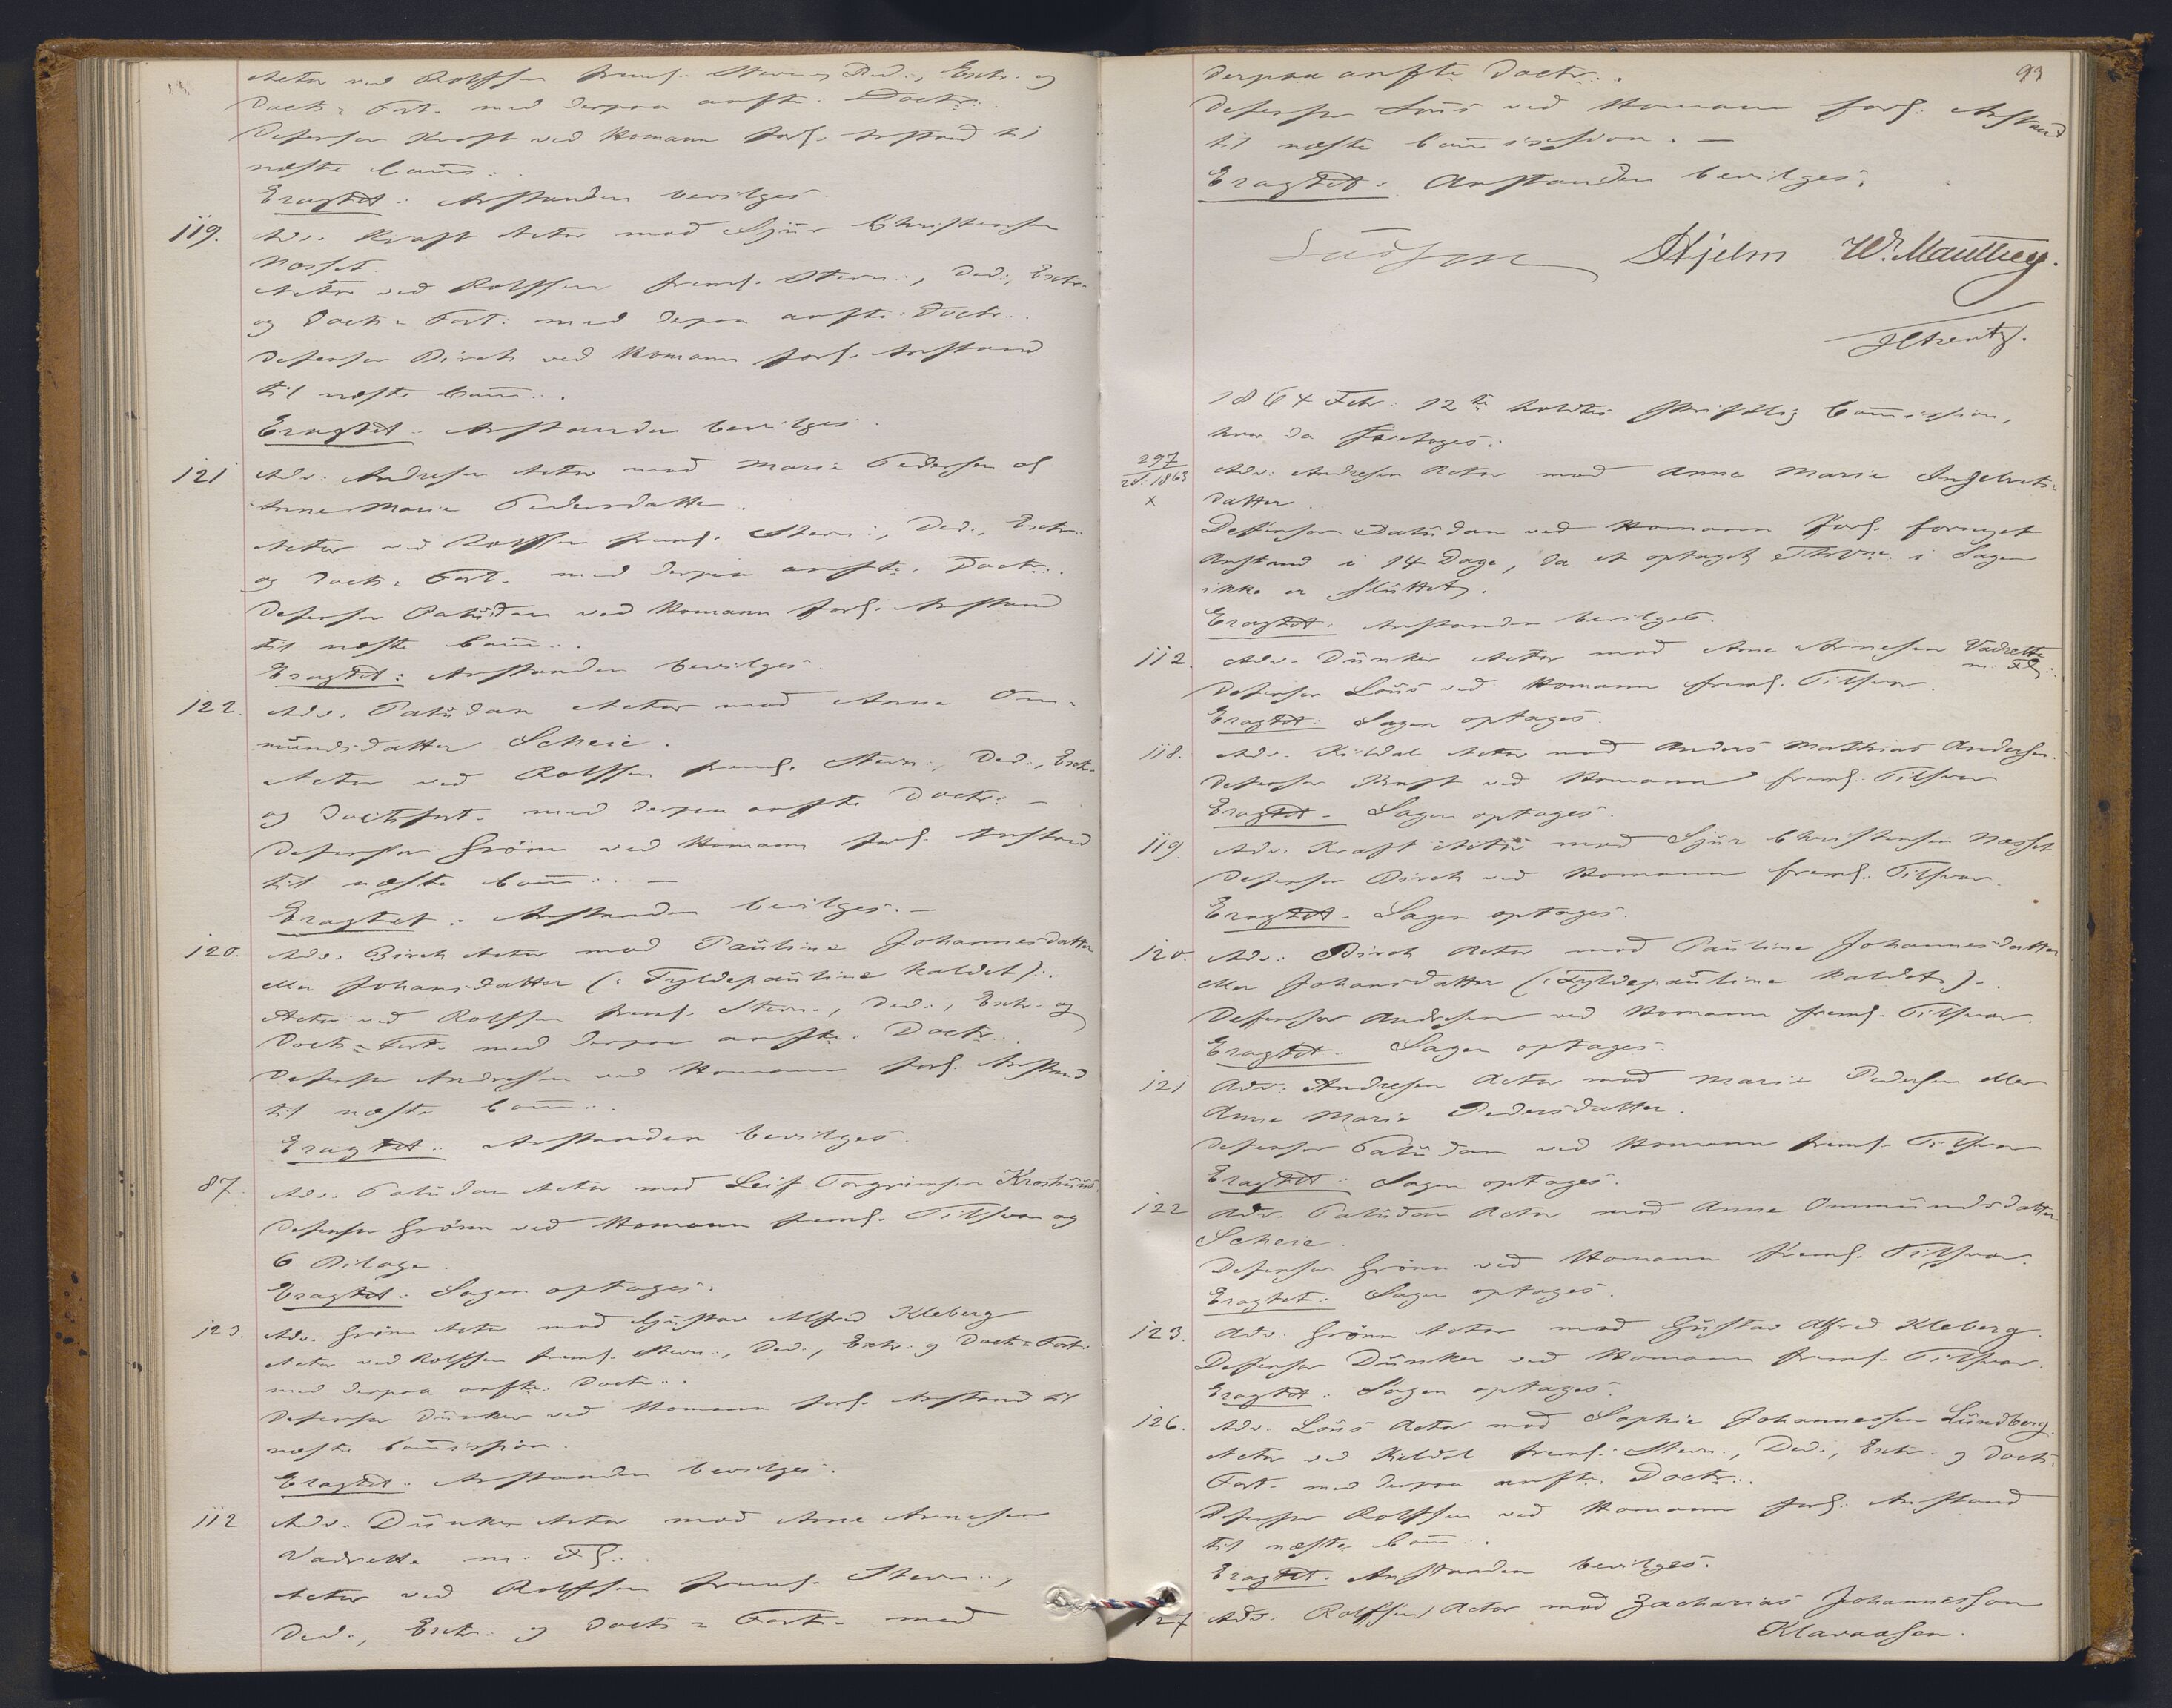 Actor ved Rolffsen freml. Stevn:, Ded:, Extr. og
Doct: Fort. med derpaa anfte. Doctr:.
Defensor Kraft ved Homann forl. Anstand til
næste Comm:.
Eragtet: Anstanden bevilges.
119. Adv. Kraft Actor mod Sjur Christensen
Næsset.
Actor ved Rolffsen freml. Stevn:, Ded:, Extr.
og Doct: Fort: med derpaa anfte: Doctr:.
Defensor Birch ved Homann forl. Anstand
til næste Comm:.
Eragtet: Anstanden bevilges.
121 Adv: Andresen Actor mod Marie Pedersen el
Anne Marie Pedersdatter.
Actor ved Rolffsen freml. Stevn:, Ded:, Extr:
og Doct: Fort. med derpaa anfte. Doctr:.
Defensor Paludan ved Homann forl. Anstand
til næste Comm:.
Eragtet: Anstanden bevilges.
122. Adv. Paludan Actor mod Anne Om-
mundsdatter Scheie.
Actor ved Rolffsen freml. Stevn:, Ded:, Extr.
og Doctsfort. med derpaa anfte Doctr: –
Defensor Grönn ved Homann forl. Anstand
til næste Comm:. –
Eragtet: Anstanden bevilges. –
120. Adv. Birch Actor mod Pauline Johannesdatter
eller Johansdatter (: Fyldepauline kaldet:).
Actor ved Rolffsen freml. Stevn:, Ded:, Extr. og
Doct: Fort. med derpaa anfte. Doctr:.
Defensor Andresen ved Homann forl. Anstand
til næste Comm:.
Eragtet: Anstanden bevilges.
87. Adv. Paludan Actor mod Leif Torgrimsen Kroshuus.
Defensor Grönn ved Homann freml. Tilsvar og
6 Bilage.
Eragtet: Sagen optages.
123. Adv. Grönn Actor mod Gustav Alfred Kleberg
Actor ved Rolffsen freml. Stevn:, Ded:, Extr: og Doct: Fort.
med derpaa anfte. Doctr:.
Defensor Dunker ved Homann forl. Anstand til
næste Commission.
Eragtet: Anstanden bevilges.
112 Adv. Dunker Actor mod Arne Arnesen
Vadsette m. Fl:.
Actor ved Rolffsen freml. Stevn:,
Ded:, Extr: og Doct: Fort. med
93
derpaa anfte Doctr:.
Defensor Lous ved Homann forl: Anstand
til næste Commission. –
Eragtet: Anstanden bevilges.
Lasson Hjelm W. Manthey.
1864 Febr: 12te holdtes skriftlig Commission,
hvor da foretoges:
297/2d. 1863 x Adv: Andresen Actor mod Anne Marie Ingebrets-
datter.
Defensor Paludan ved Homann forl. fornyet
Anstand i 14 Dage, da et optaget Thvne i Sagen
ikke er sluttet.
Eragtet: Anstanden bevilges.
112. Adv. Dunker Actor mod Arne Arnesen Vadsette
m. Fl:.
Defensor Lous ved Homann freml. Tilsvar.
Eragtet: Sagen optages.
118. Adv. Kildal Actor mod Anders Mathias Andersen.
Defensor Kraft ved Homann freml. Tilsvar
Eragtet: Sagen optages.
119. Adv. Kraft Actor mod Sjur Christensen Næsset
Defensor Birch ved Homann freml. Tilsvar.
Eragtet: Sagen optages.
120. Adv: Birch Actor mod Pauline Johannesdatter
eller Johansdatter (: Fyldepauline kaldet:).
Defensor Andresen ved Homann freml. Tilsvar.
Eragtet: Sagen optages.
121 Adv: Andresen Actor mod Marie Pedersen eller
Anne Marie Pedersdatter.
Defensor Paludan ved Homann freml. Tilsvar
Eragtet: Sagen optages.
122 Adv. Paludan Actor mod Anne Ommundsdatter
Scheie.
Defensor Grönn ved Homann freml. Tilsvar.
Eragtet: Sagen optages.
123. Adv: Grönn Actor mod Gustav Alfred Kleberg.
Defensor Dunker ved Homann freml. Tilsvar.
Eragtet: Sagen optages.
126. Adv. Lous Actor mod Sophie Johannessen Lundberg.
Actor ved Kildal freml: Stevn:, Ded:, Extr: og Doct:
Fort. med derpaa anfte. Doctr:.
Defensor Rolffsen ved Homann forl: Anstand
til næste Comm:.
Eragtet: Anstanden bevilges.
127 Adv. Rolffsen Actor mod Zacharias Johannesson
Klavaasen.